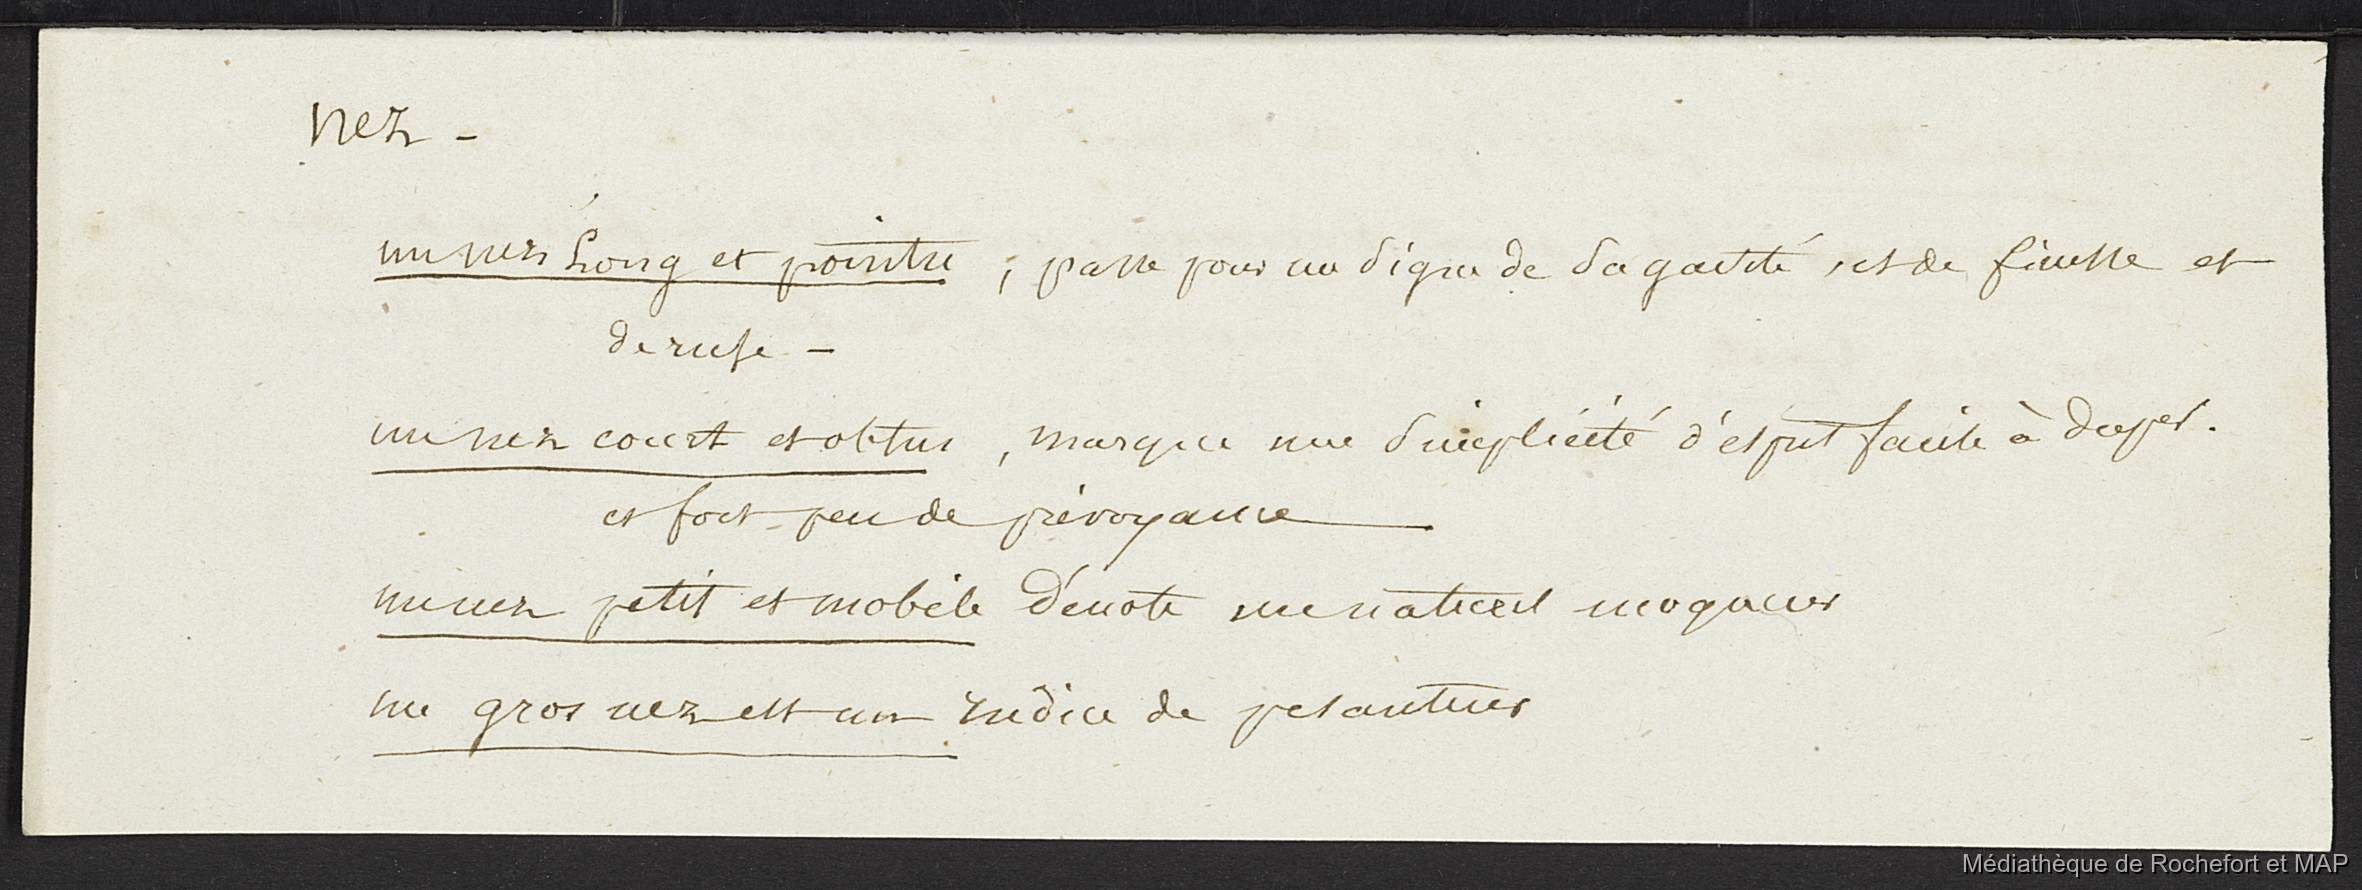 nez -
un nez Long et pointu, passe pour un signe de sagacité, et de finesse et
de ruse -
un nez court et obtus, marque une simplicité d'esprit facile à duper.
et fort peu de prévoyance
un nez petit et mobile dénote un naturel moqueur
un gros nez est un indice de pesanteur
Médiathèque de Rochefort et MAP